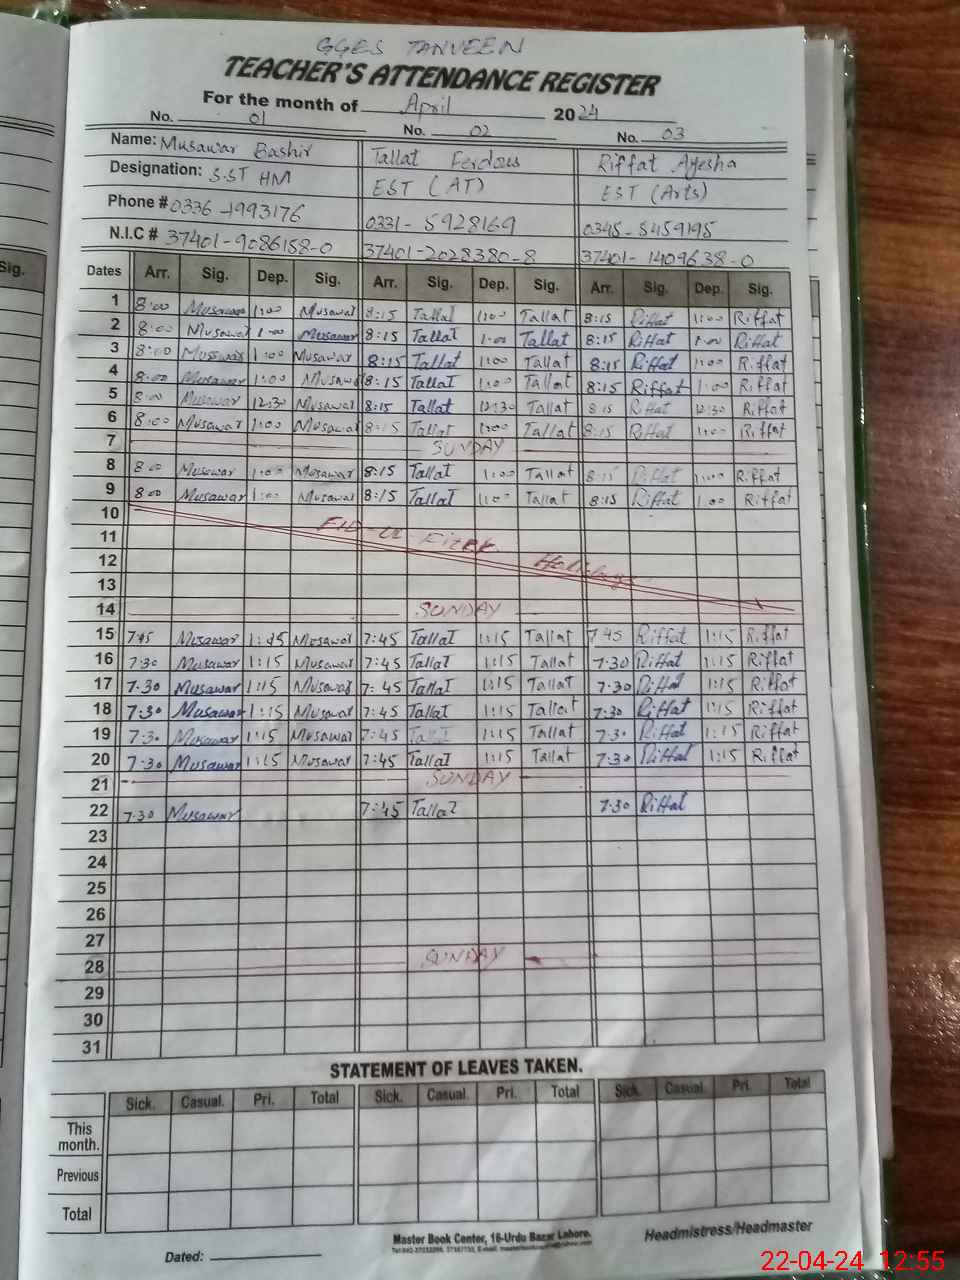 GGES TANVEEN
TEACHER'S ATTENDANCE REGISTER
For the month of April 2024
No. 01 No. 02 No. 03
Name: Musawar Bashir Tallat Ferdous Riffat Ayesha
Designation: S.ST HM EST (AT) EST (Arts)
Phone # 0336-1993176 0331-5928169 0345-5459195
N.I.C # 37401-9086158-0 37401-2028380-8 37401-1409638-0
Sig.
Dates Arr. Sig. Dep. Sig. Arr. Sig. Dep. Sig. Arr. Sig. Dep. Sig.
1 8:00 Musawar 1:00 Musawar 8:15 Tallat 1:00 Tallat 8:15 Riffat 1:00 Riffat
2 8:00 Musawar 1:00 Musawar 8:15 Tallat 1:00 Tallat 8:15 Riffat 1:00 Riffat
3 8:00 Musawar 1:00 Musawar 8:15 Tallat 1:00 Tallat 8:15 Riffat 1:00 Riffat
4 8:00 Musawar 1:00 Musawar 8:15 Tallat 1:00 Tallat 8:15 Riffat 1:00 Riffat
5 8:00 Musawar 12:30 Musawar 8:15 Tallat 12:30 Tallat 8:15 Riffat 12:30 Riffat
6 8:00 Musawar 1:00 Musawar 8:15 Tallat 1:00 Tallat 8:15 Riffat 1:00 Riffat
7 SUNDAY
8 8:00 Musawar 1:00 Musawar 8:15 Tallat 1:00 Tallat 8:15 Riffat 1:00 Riffat
9 8:00 Musawar 1:00 Musawar 8:15 Tallat 1:00 Tallat 8:15 Riffat 1:00 Riffat
10
11 EID-UL-FITER
12 Holidays
13
14 SUNDAY
15 7:45 Musawar 1:45 Musawar 7:45 Tallat 1:15 Tallat 7:45 Riffat 1:15 Riffat
16 7:30 Musawar 1:15 Musawar 7:45 Tallat 1:15 Tallat 7:30 Riffat 1:15 Riffat
17 7:30 Musawar 1:15 Musawar 7:45 Tallat 1:15 Tallat 7:30 Riffat 1:15 Riffat
18 7:30 Musawar 1:15 Musawar 7:45 Tallat 1:15 Tallat 7:30 Riffat 1:15 Riffat
19 7:30 Musawar 1:15 Musawar 7:45 Tallat 1:15 Tallat 7:30 Riffat 1:15 Riffat
20 7:30 Musawar 1:15 Musawar 7:45 Tallat 1:15 Tallat 7:30 Riffat 1:15 Riffat
21 SUNDAY
22 7:30 Musawar 7:45 Tallat 7:30 Riffat
23
24
25
26
27
28 SUNDAY
29
30
31
STATEMENT OF LEAVES TAKEN.
Sick. Casual. Pri. Total Sick. Casual. Pri. Total Sick. Casual. Pri. Total
This month.
Previous
Total
Dated:
Master Book Center, 16-Urdu Bazar Lahore.
Headmistress/Headmaster
22-04-24 12:55